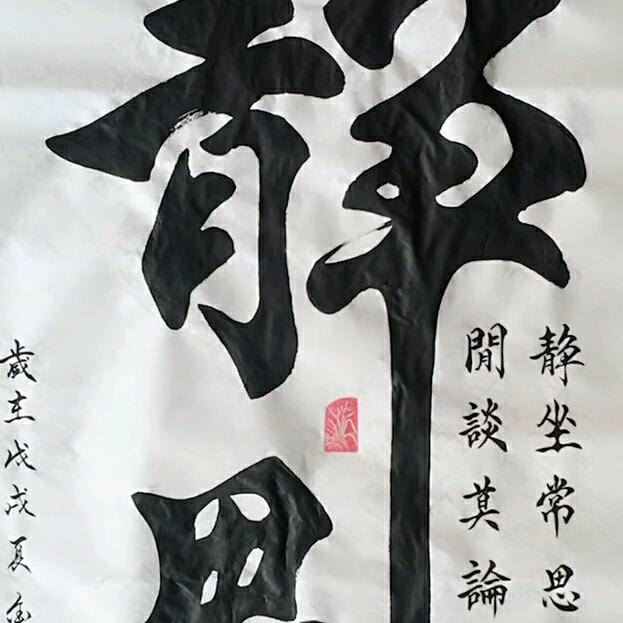 靜思
静坐常思
閒談莫論
歲在戊戌夏